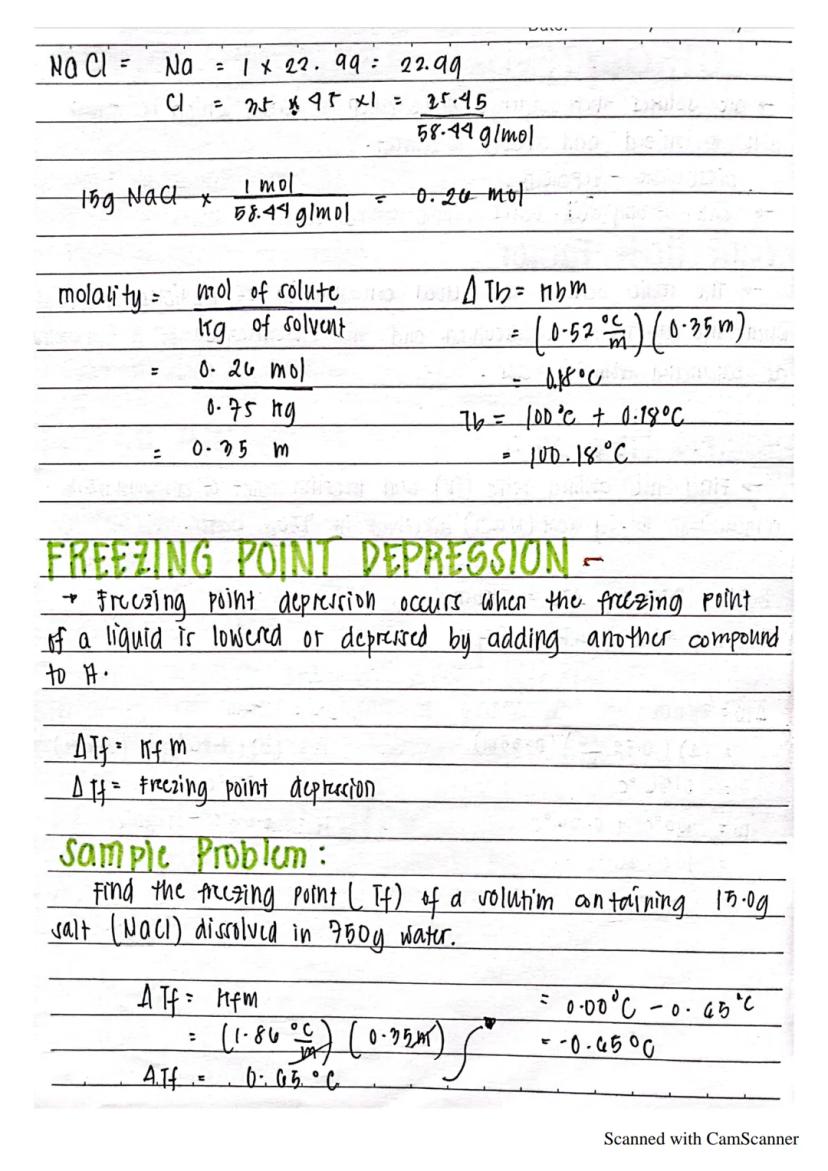 Date:
NaCl = Na = 1 x 22.99 = 22.99
Cl = 35.45 x1 = 35.45
58.44 g/mol
15g NaCl x 1 mol / 58.44 g/mol = 0.26 mol
molality = mol of solute / kg of solvent
= 0.26 mol / 0.75 kg
= 0.35 m
ΔTb = Kbm
= (0.52 °C/m) (0.35m)
= 0.18°C
Tb = 100°C + 0.18°C
= 100.18°C
FREEZING POINT DEPRESSION -
→ Freezing point depression occurs when the freezing point
of a liquid is lowered or depressed by adding another compound
to it.
ΔTf = Kf m
ΔTf = Freezing point depression
Sample Problem:
Find the freezing point (Tf) of a solution containing 15.0g
salt (NaCl) dissolved in 750g water.
ΔTf = Kfm
= (1.86 °C/m) (0.35m)
ΔTf = 0.65 °C
= 0.00°C - 0.65°C
= -0.65°C
Scanned with CamScanner